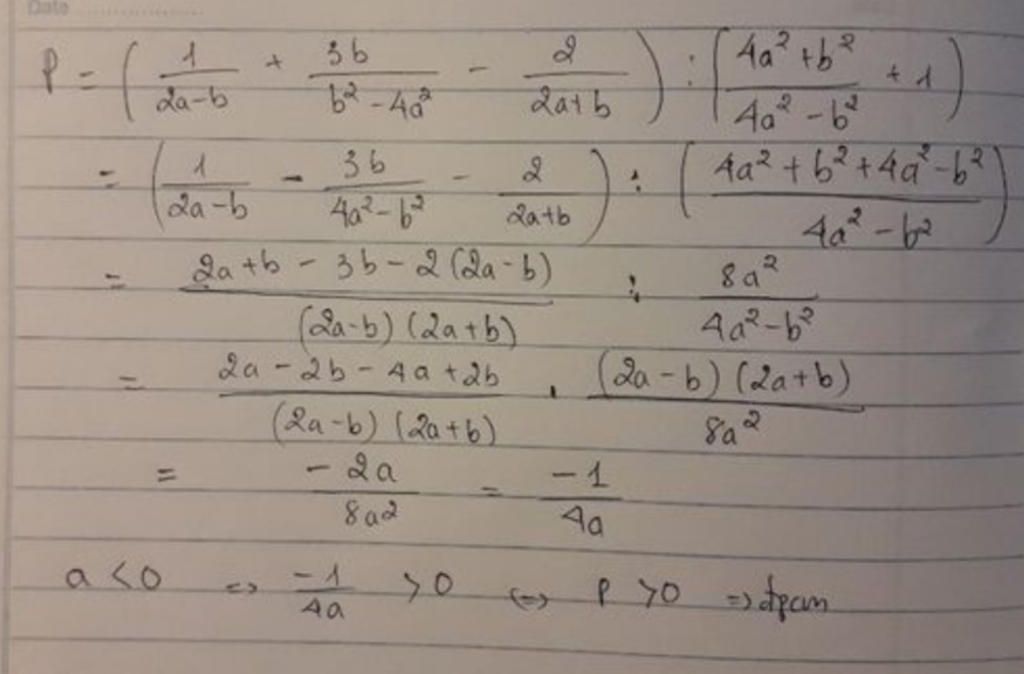 Date
P = ( 1/(2a-b) + 3b/(b² - 4a²) - 2/(2a+b) ) : ( (4a² + b²)/(4a² - b²) + 1 )
= ( 1/(2a-b) - 3b/(4a² - b²) - 2/(2a+b) ) : ( (4a² + b² + 4a² - b²)/(4a² - b²) )
= (2a + b - 3b - 2(2a - b))/((2a-b)(2a+b)) : 8a²/(4a² - b²)
= (2a - 2b - 4a + 2b)/((2a-b)(2a+b)) . ((2a-b)(2a+b))/8a²
= -2a/8a² = -1/4a
a < 0 => -1/4a > 0 <=> P > 0 => đpcm